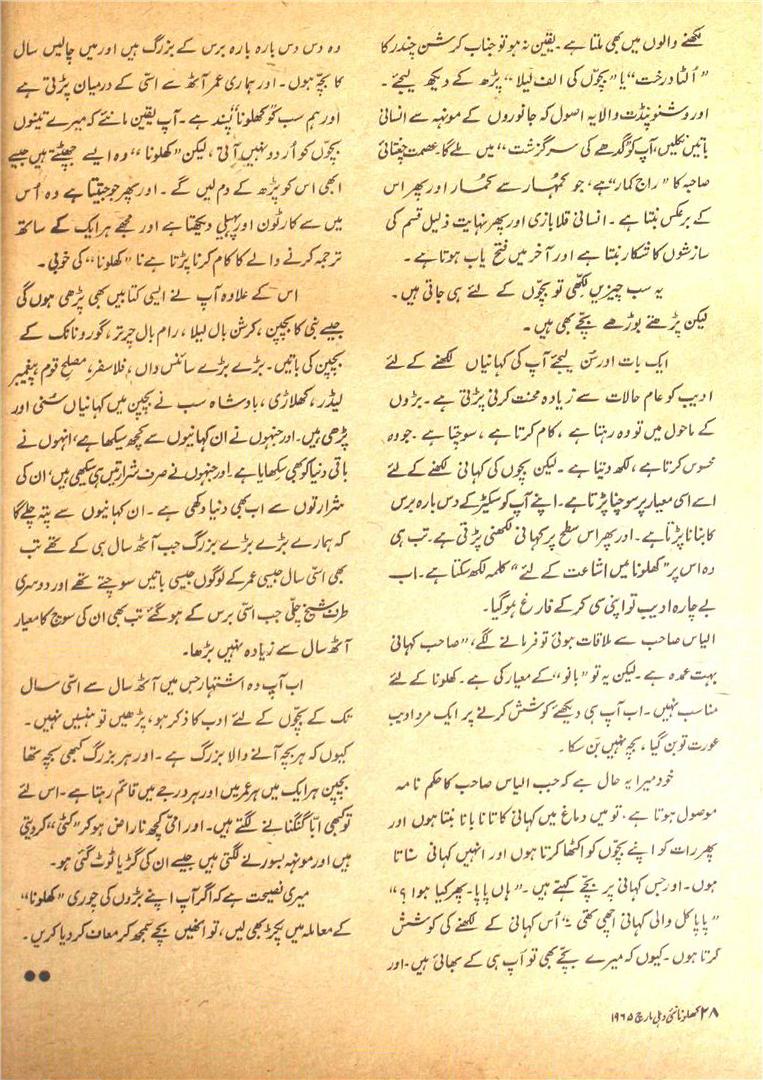 لکھنے والوں میں بھی ملتا ہے۔ یقین نہ ہو تو جناب کرشن چندر کا
”اُلٹا درخت“ یا ”بچّوں کی الف لیلا“ پڑھ کے دیکھ لیجئے۔
اور وشنو پنڈت والا یہ اصول کہ جانوروں کے مونہہ سے انسانی
باتیں نکلیں، آپ کو ”گدھے کی سرگزشت“ میں ملے گا۔ عصمت چغتائی
صاحبہ کا ”راج کمار“ ہے، جو کمہار سے کُمار اور پھر اس
کے برعکس بنتا ہے۔ انسانی قلابازی اور پھر نہایت ذلیل قسم کی
سازشوں کا شکار بنتا ہے اور آخر میں فتح یاب ہوتا ہے۔
یہ سب چیزیں لکھی تو بچّوں کے لئے ہی جاتی ہیں۔
لیکن پڑھتے بوڑھے بچّے بھی ہیں۔
ایک بات اور سُن لیجئے آپ کی کہانیاں لکھنے کے لئے
ادیب کو عام حالات سے زیادہ محنت کرنی پڑتی ہے۔ بڑوں
کے ماحول میں تو وہ رہتا ہے، کام کرتا ہے، سوچتا ہے۔ جو وہ
محسوس کرتا ہے، لکھ دیتا ہے۔ لیکن بچّوں کی کہانی لکھنے کے لئے
اسے اسی معیار پر سوچنا پڑتا ہے۔ اپنے آپ کو سکیڑ کے دس بارہ برس
کا بنانا پڑتا ہے۔ اور پھر اس سطح پر کہانی لکھنی پڑتی ہے۔ تب ہی
وہ اس پر ”کھلونا میں اشاعت کے لئے“ کلمہ لکھ سکتا ہے۔ اب
بے چارہ ادیب تو اپنی سی کر کے فارغ ہو گیا۔
الیاس صاحب سے ملاقات ہوئی تو فرمانے لگے، ”صاحب کہانی
بہت عمدہ ہے۔ لیکن یہ تو ”بانو“ کے معیار کی ہے۔ کھلونا کے لئے
مناسب نہیں۔ اب آپ ہی دیکھئے کوشش کرنے پر ایک مرد ادیب
عورت تو بن گیا، بچہ نہیں بَن سکا۔
خود میرا یہ حال ہے کہ جب الیاس صاحب کا حکم نامہ
موصول ہوتا ہے، تو میں دماغ میں کہانی کا تانا بانا بنتا ہوں اور
پھر رات کو اپنے بچّوں کو اکٹھا کرتا ہوں اور انہیں کہانی سُناتا
ہوں۔ اور جس کہانی پر بچّے کہتے ہیں۔ ”ہاں پاپا۔ پھر کیا ہوا؟“
”پاپا کل والی کہانی اچھی تھی نہ“ اُس کہانی کے لکھنے کی کوشش
کرتا ہوں۔ کیوں کہ میرے بچّے بھی تو آپ ہی کے بھائی ہیں۔ اور
وہ دس دس بارہ بارہ برس کے بزرگ ہیں اور میں چالیس سال
کا بچّہ ہوں۔ اور ہماری عمر آٹھ سے اسّی کے درمیان پڑتی ہے
اور ہم سب کو کھلونا پسند ہے۔ آپ یقین مانئے کہ میرے تینوں
بچّوں کو اُردو نہیں آتی، لیکن ”کھلونا“ وہ ایسے جھپٹتے ہیں جیسے
ابھی اس کو پڑھ کے دم لیں گے۔ اور پھر جو جیتتا ہے وہ اُس
میں سے کارٹون اور پہیلی دیکھتا ہے اور مجھے ہر ایک کے ساتھ
ترجمہ کرنے والے کا کام کرنا پڑتا ہے نا ”کھلونا“ کی خوبی۔
اس کے علاوہ آپ نے ایسی کتابیں بھی پڑھی ہوں گی
جیسے نبی کا بچپن، کرشن بال لیلا، رام بال چرتر، گورو نانک کے
بچپن کی باتیں۔ بڑے بڑے سائنس داں، فلاسفر، مصلحِ قوم، پیغمبر
لیڈر، کھلاڑی، بادشاہ سب نے بچپن میں کہانیاں سُنی اور
پڑھی ہیں۔ اور جنہوں نے ان کہانیوں سے کچھ سیکھا ہے، انہوں نے
باقی دنیا کو بھی سکھایا ہے۔ اور جنہوں نے صرف شرارتیں ہی سیکھی ہیں، ان کی
شرارتوں سے اب بھی دنیا دکھی ہے۔ ان کہانیوں سے پتہ چلے گا
کہ ہمارے بڑے بڑے بزرگ جب آٹھ سال ہی کے تھے تب
بھی اسّی سال جیسی عمر کے لوگوں جیسی باتیں سوچتے تھے اور دوسری
طرف شیخ چلّی جب اسّی برس کے ہو گئے تب بھی ان کی سوچ کا معیار
آٹھ سال سے زیادہ نہیں بڑھا۔
اب آپ وہ اشتہار جس میں آٹھ سال سے اسّی سال
تک کے بچّوں کے لئے ادب کا ذکر ہو، پڑھیں تو ہنسیں نہیں۔
کیوں کہ ہر بچہ آنے والا بزرگ ہے۔ اور ہر بزرگ کبھی بچہ تھا
بچپن ہر ایک میں ہر عمر میں اور ہر درجے میں قائم رہتا ہے۔ اس لئے
تو کبھی ابّا گنگنانے لگتے ہیں۔ اور امّی کچھ ناراض ہو کر ”کٹّی“ کر دیتی
ہیں اور مونہہ بسورنے لگتی ہیں جیسے ان کی گڑیا ٹوٹ گئی ہو۔
میری نصیحت ہے کہ اگر آپ اپنے بڑوں کی چوری ”کھلونا“
کے معاملہ میں پکڑ بھی لیں، تو انہیں بچّے سمجھ کر معاف کر دیا کریں۔
۲۸ کھلونا نئی دہلی مارچ ۱۹۶۵